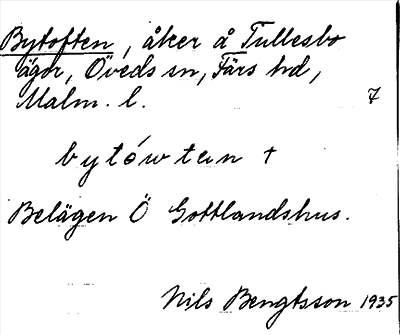 Bytoften, åker å Tullesbo
ägor, Öveds sn, Färs hd,
Malm. l. 7
bytówtan †
Belägen Ö Gottlandshus.
Nils Bengtsson 1935